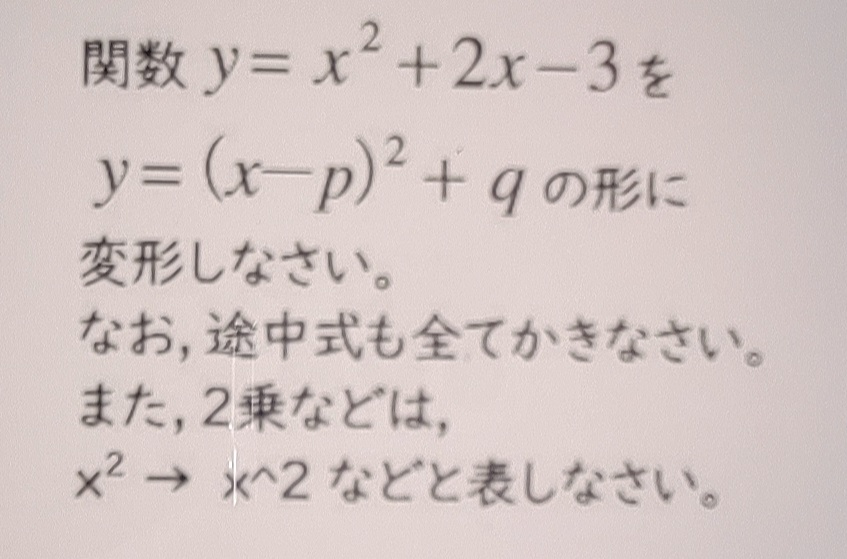 関数 y = x² + 2x − 3 を
y = (x − p)² + q の形に
変形しなさい。
なお, 途中式も全てかきなさい。
また, 2乗などは,
x² → x^2 などと表しなさい。